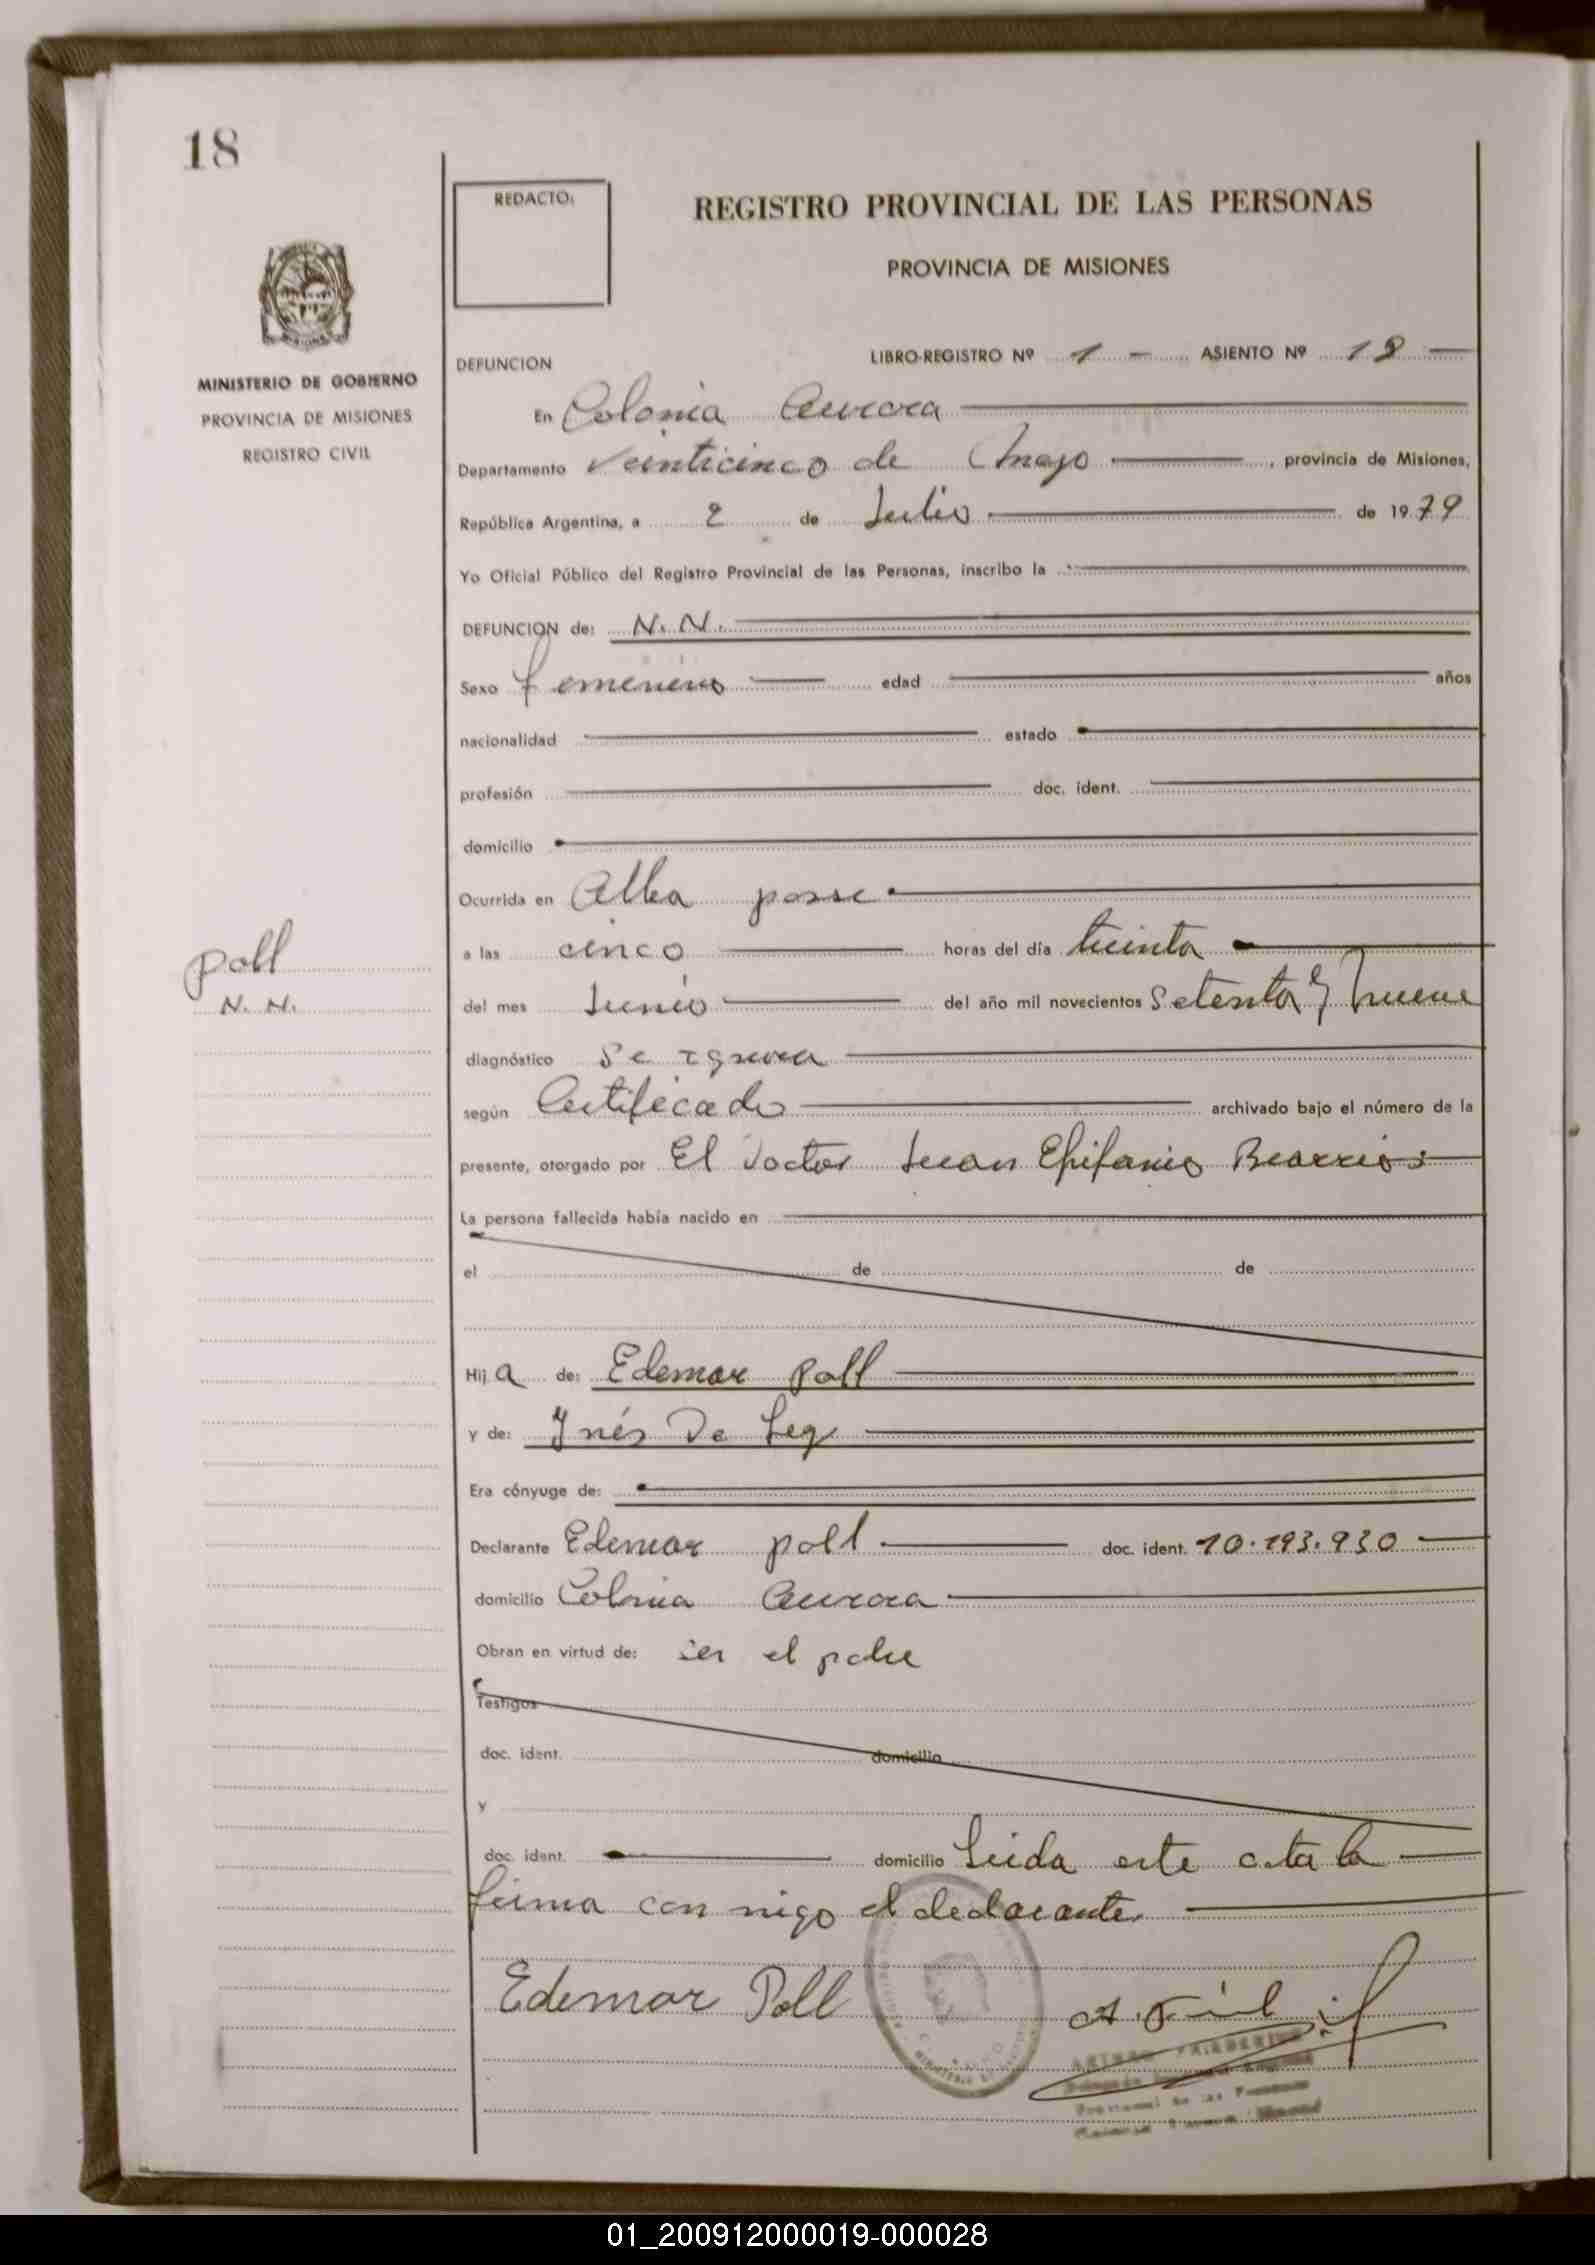 18
REDACTO:
REGISTRO PROVINCIAL DE LAS PERSONAS
PROVINCIA DE MISIONES
MINISTERIO DE GOBIERNO
PROVINCIA DE MISIONES
REGISTRO CIVIL
DEFUNCION LIBRO-REGISTRO Nº 1 - ASIENTO Nº 18
En Colonia Aurora
Departamento Veinticinco de Mayo, provincia de Misiones,
República Argentina, a 2 de Julio de 1979
Yo Oficial Público del Registro Provincial de las Personas, inscribo la
DEFUNCION de: N. N.
Sexo femenino edad años
nacionalidad estado
profesión doc. ident.
domicilio
Ocurrida en Alba posse
a las cinco horas del día treinta
del mes Junio del año mil novecientos Setenta y nueve
poll
N. N.
diagnóstico Se ignora
según Certificado archivado bajo el número de la
presente, otorgado por El Doctor Juan Epifanio Bearrios
La persona fallecida había nacido en
el de de
Hija de: Edemar Poll
y de: Ynés De Leq
Era cónyuge de:
Declarante Edemar poll doc. ident. 10.193.930
domicilio Colonia Aurora
Obran en virtud de: ser el padre
Testigos
doc. ident. domicilio
y
doc. ident. domicilio Leida este acta la
firma con migo el declarante
Edemar Poll
01_200912000019-000028